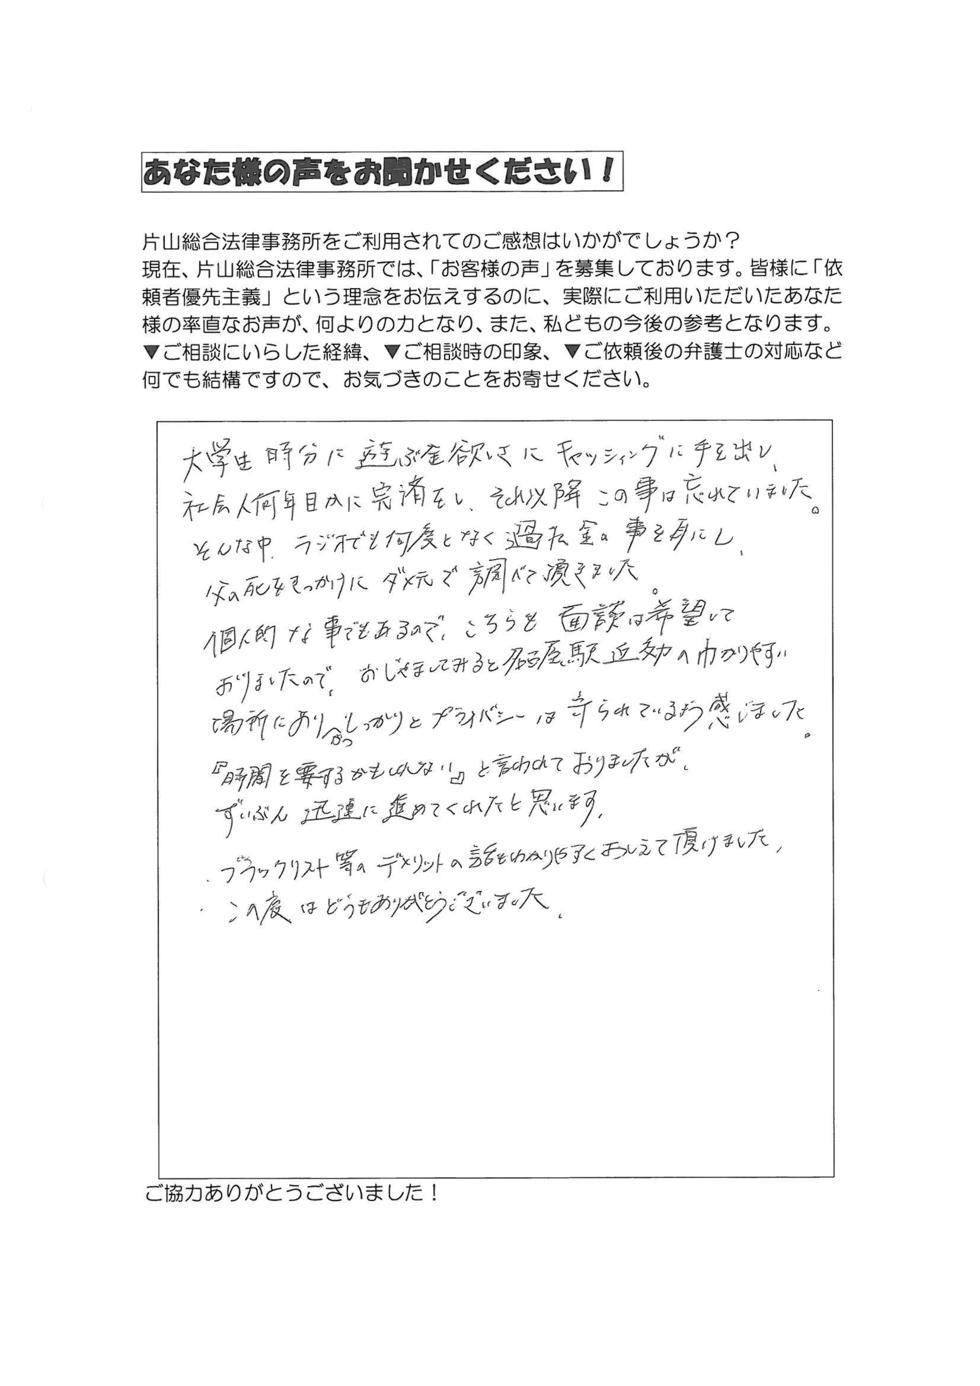 あなた様の声をお聞かせください！
片山総合法律事務所をご利用されてのご感想はいかがでしょうか？
現在、片山総合法律事務所では、「お客様の声」を募集しております。皆様に「依
頼者優先主義」という理念をお伝えするのに、実際にご利用いただいたあなた
様の率直なお声が、何よりの力となり、また、私どもの今後の参考となります。
▼ご相談にいらした経緯、▼ご相談時の印象、▼ご依頼後の弁護士の対応など
何でも結構ですので、お気づきのことをお寄せください。
大学生時分に遊ぶ金欲しさにキャッシィングに手を出し、
社会人何年目かに完済をし、それ以降この事は忘れていました。
そんな中、ラジオでも何度となく過払金の事を耳にし、
父の死をきっかけにダメ元で調べて頂きました。
個人的な事でもあるので、こちらも面談は希望して
おりましたので、おじゃましてみると名古屋駅近効のわかりやすい
場所にあり、かつしっかりとプライバシーは守られているよう感じました。
『時間を要するかもしれない』と言われておりましたが、
ずいぶん迅速に進めてくれたと思います。
・ブラックリスト等のデメリットの話もわかりやすくおしえて頂けました。
・この度はどうもありがとうございました。
ご協力ありがとうございました！